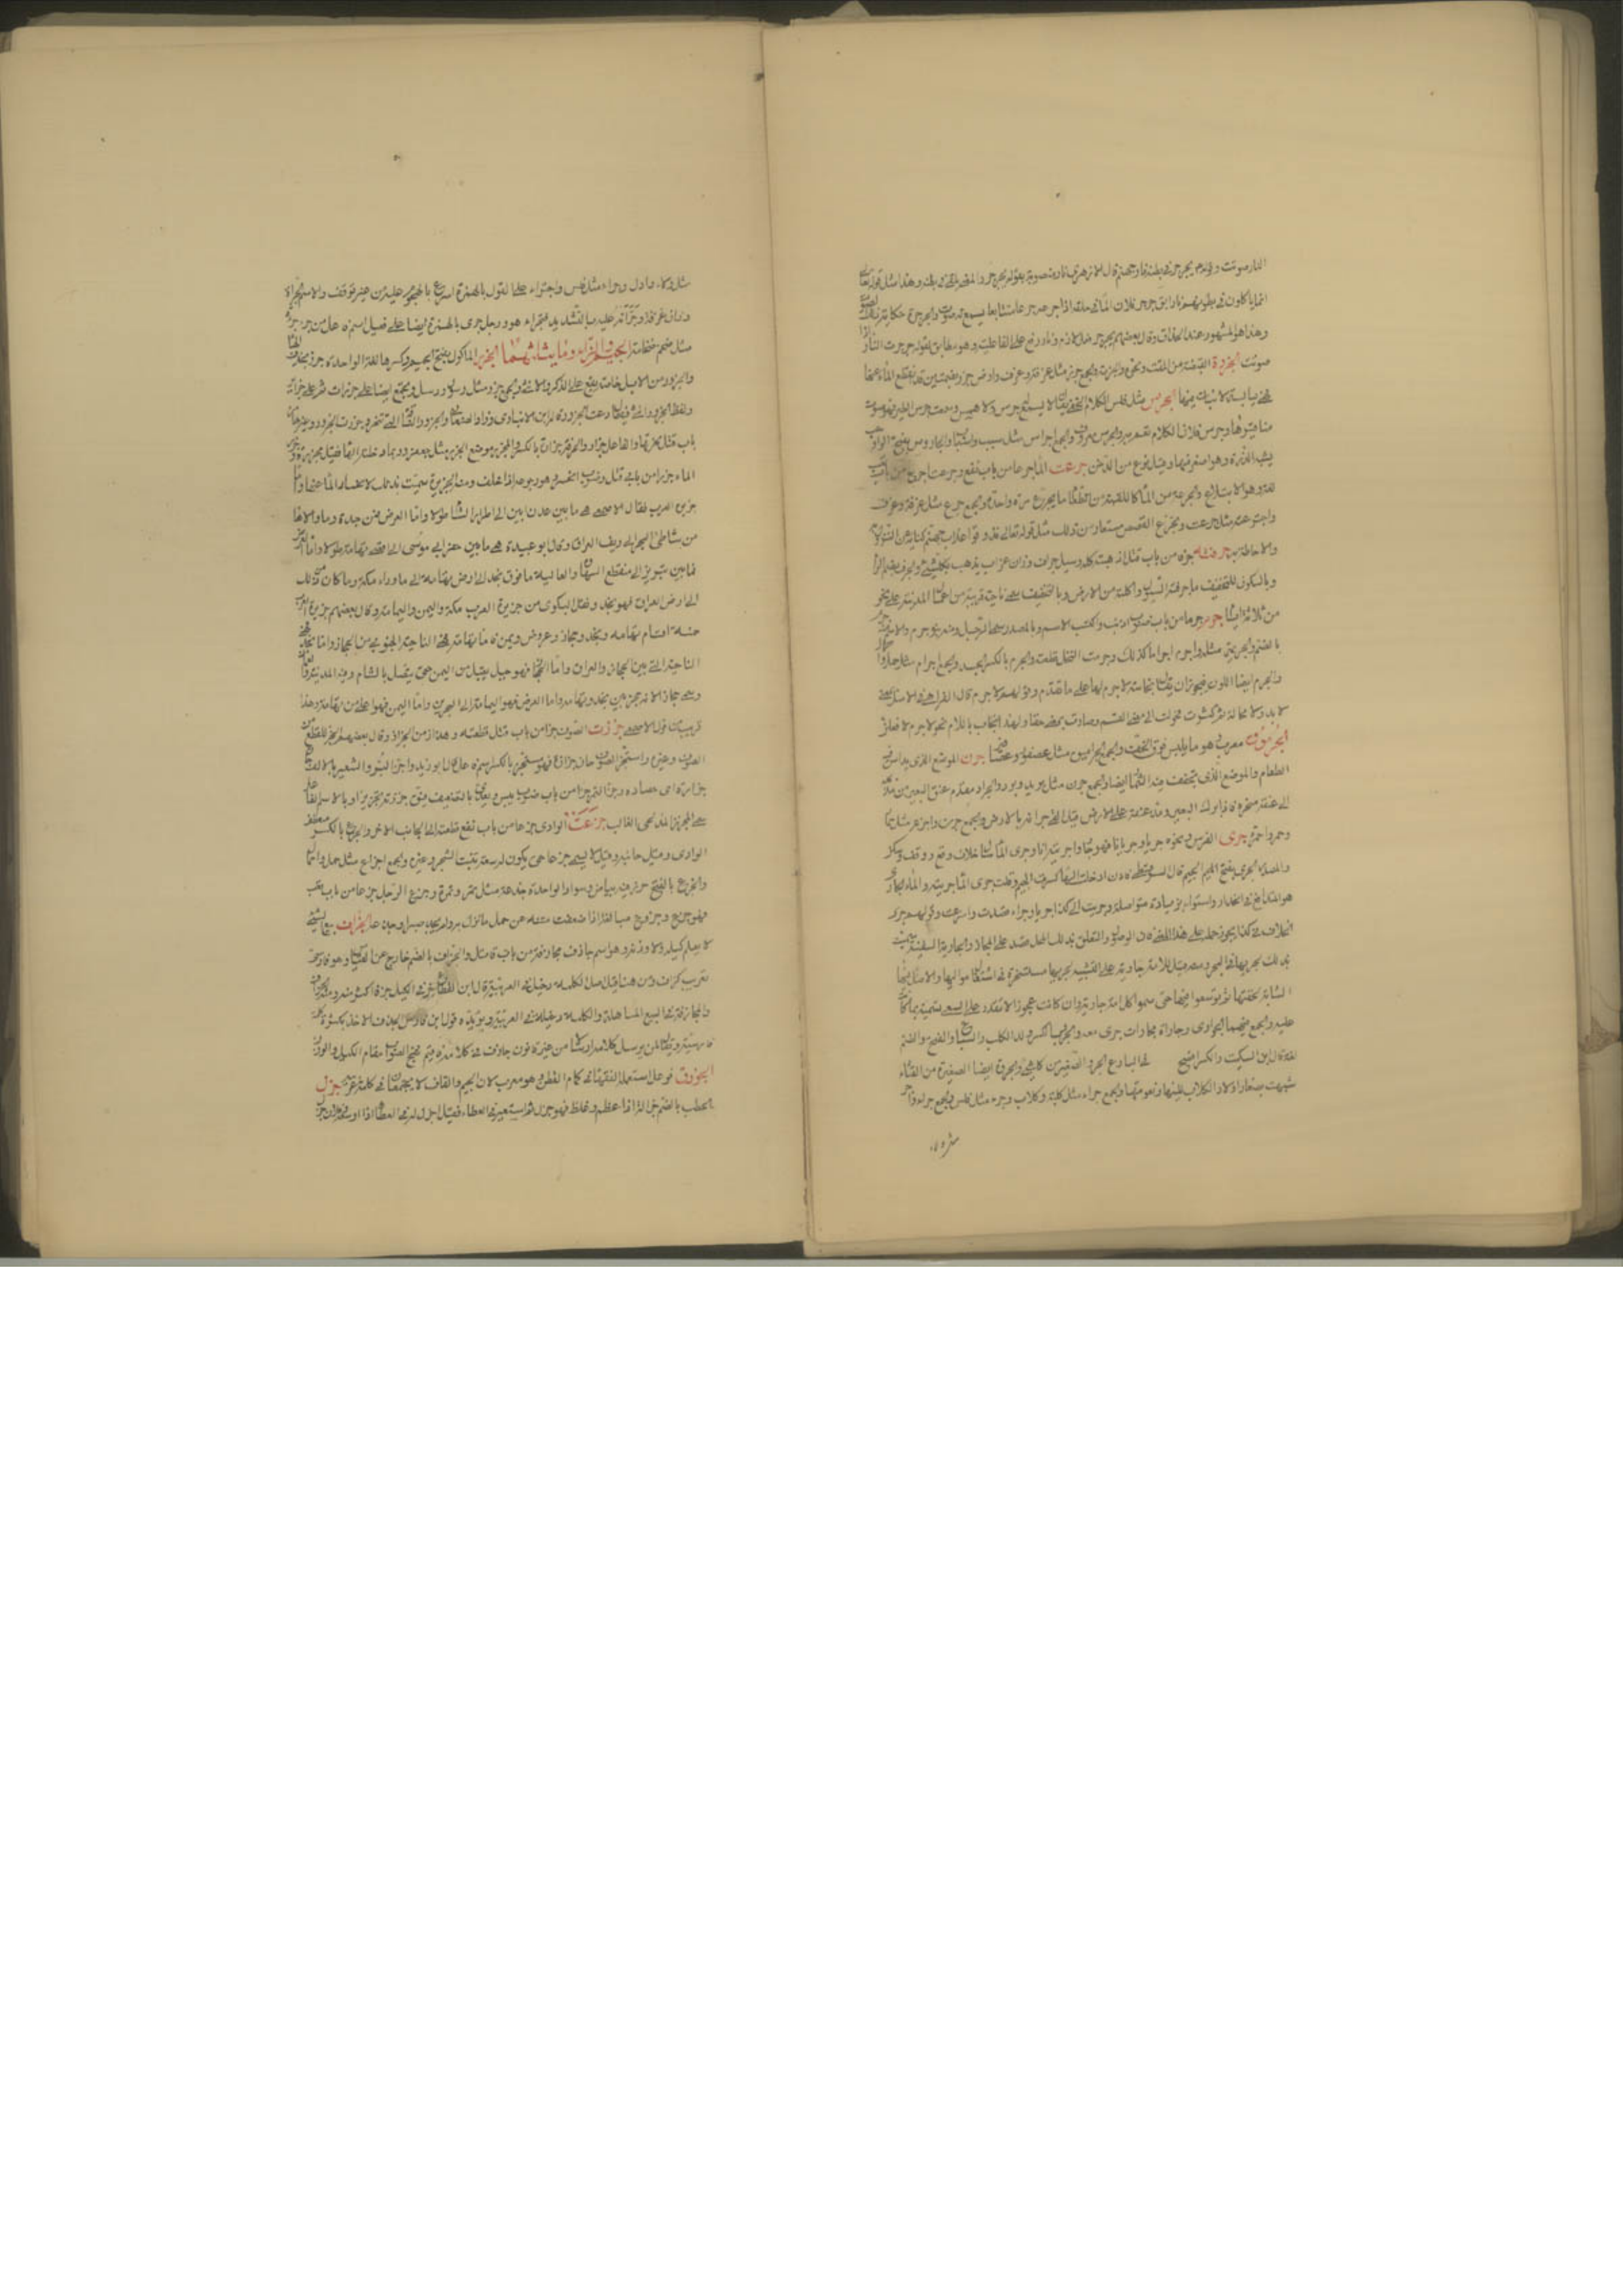 النار صوتت وقوله يجرجر في بطنه نار جهنم قال الازهري نار منصوبة بقوله يجرجر والمعنى يلقي في بطنه وهذا مثل قوله تعالى
انما ياكلون في بطونهم نارا يقال جرجر فلان الماء في حلقه اذا جرعه جرعا متتابعا يسمع له صوت والجرجرة حكاية ذلك الصوت
وهذا هو المشهور عند الحذاق وقال بعضهم يجرجر فعل لازم ونار رفع على الفاعلية وهو مطابق لقوله جرجرت النار اذا
صوتت الجرزة القبضة من القت ونحوه والحزمة والجمع جرز مثل غرفة وغرف وارض جرز بضمتين قد انقطع الماء عنها
فهي يابسة لا نبات فيها الجرس مثل فلس الكلام الخفي يقال لا يسمع له جرس ولا همس وسمعت جرس الطير وهو صوت
مناقيرها وجرس فلان الكلام نغم به والجرس معروف والجمع اجراس مثل سبب واسباب والجاورس بفتح الواو حب
يشبه الذرة وهو اصغر منها وقيل نوع من الدخن جرعت الماء جرعا من باب نفع وجرعت اجرع من باب تعب
لغة وهو الابتلاع والجرعة من الماء كاللقمة من الطعام ما يجرع مرة واحدة والجمع جرع مثل غرفة وغرف
واجترعته مثل جرعته وتجرع الغصص مستعار من ذلك مثل قوله تعالى فذوقوا العذاب كناية عن النزول به
والاحاطة جرفته جرفا من باب قتل اذهبته كله وسيل جراف وزان غراب يذهب بكل شيء والجرف بضم الراء
وبالسكون للتخفيف ما جرفته السيول واكلته من الارض وبالمخفف سمي ناحية قريبة من اعمال المدينة على نحو
من ثلاثة اميال جرم جرما من باب ضرب اذنب واكتسب الاثم وبالمصدر سمي الرجل ومنه بنو جرم والاسم منه جرم
بالضم والجريمة مثله واجرم اجراما كذلك وجرمت النخل قطعته والجرم بالكسر الجسد والجمع اجرام مثل حمل واحمال
والجرم ايضا اللون فيجوز ان يقال نجاسة لا جرم لها على ما تقدم وقولهم لا جرم قال الفراء هي في الاصل بمعنى
لا بد ولا محالة ثم كثرت فحولت الى معنى القسم وصارت بمعنى حقا ولهذا يجاب باللام نحو لا جرم لافعلن
الجرموق معرب هو ما يلبس فوق الخف والجمع الجراميق مثل عصفور وعصافير الجرين الموضع الذي يداس فيه
الطعام والموضع الذي يجفف فيه الثمار ايضا والجمع جرن مثل بريد وبرد والجران مقدم عنق البعير من مذبحه
الى منحره فاذا برك البعير ومد عنقه على الارض قيل القى جرانه بالارض والجمع جرن واجرنة مثل حمار
وحمر واحمرة جرى الفرس ونحوه جريا وجريانا فهو جار واجريته انا وجرى الماء سال خلاف وقف وسكن
والمصدر الجري بفتح الجيم قال السرقسطي فان ادخلت الهاء كسرت الجيم وقلت جرى الماء جرية والماء الجاري
هو المتدافع في انحدار او استواء وجريت الى كذا جريا وجراء قصدت واسرعت وقولهم جرى
الخلاف في كذا يجوز حمله على هذا المعنى فان الوصول والتعلق بذلك المحل قصد على المجاز والجارية السفينة سميت
بذلك لجريها في البحر ومنه قيل للامة جارية على التشبيه لجريها مستسخرة في اشغال مواليها والاصل فيها
الشابة لخفتها ثم توسعوا فيها حتى سموا كل امة جارية وان كانت عجوزا لا تقدر على السعي تسمية بما كانت
عليه والجمع فيهما الجواري وجاراه مجاراة جرى معه والجرو بالكسر ولد الكلب والسباع والفتح والضم
لغة قال ابن السكيت والكسر افصح في البارع الجرو الصغير من كل شيء والجروة ايضا الصغيرة من القثاء
شبهت بصغار اولاد الكلاب للينها ونعومتها والجمع جراء مثل كلبة وكلاب واجر مثل فلس وتجمع جراء
مثل ... وجراء مثل فلس واجترأ على القول بالهمزة اسرع بالهجوم عليه من غير توقف والاسم الجراة
وزان غرفة وجرأته عليه بالتشديد فتجرأ هو ورجل جريء بالهمزة ايضا على فعيل اسم فاعل من جرؤ جراءة
مثل ضخم ضخامة الجيم والزاي وما يثلثهما الجزر الماكول بفتح الجيم وكسرها لغة الواحدة جزرة بالهاء
والجزور من الابل خاصة يقع على الذكر والانثى والجمع جزر مثل رسول ورسل ويجمع ايضا على جزرات ثم على جزائر
ولفظ الجزور انثى فيقال رعت الجزور قاله ابن الانباري وزاد الصغاني والجزور الناقة التي تنحر وجزرت الجزور وغيرها من
باب قتل نحرتها والفاعل جزار والحرفة الجزارة بالكسر والمجزر موضع الجزر مثل جعفر وربما دخلته الهاء فقيل مجزرة وجزر
الماء جزرا من بابي ضرب وقتل انحسر وهو رجوعه الى خلف ومنه الجزيرة سميت بذلك لانحسار الماء عنها واما
جزيرة العرب فقال الاصمعي هي ما بين عدن ابين الى اطراف الشام طولا واما العرض فمن جدة وما والاها
من شاطئ البحر الى ريف العراق وقال ابو عبيدة هي ما بين حفر ابي موسى الى اقصى تهامة طولا واما العرض
فما بين يبرين الى منقطع السماوة والعالية ما فوق نجد الى ارض تهامة الى ما وراء مكة وما كان دون ذلك
الى ارض العراق فهو نجد ونقل البكري ان جزيرة العرب مكة والمدينة واليمن واليمامة وقال بعضهم جزيرة العرب
خمسة اقسام تهامة ونجد وحجاز وعروض ويمن فاما تهامة فهي الناحية الجنوبية من الحجاز واما نجد فهي
الناحية التي بين الحجاز والعراق واما الحجاز فهو جبل يقبل من اليمن حتى يتصل بالشام وفيه المدينة وعمان
وسمي حجازا لانه حجز بين نجد وتهامة واما العروض فهو اليمامة الى البحرين واما اليمن فهو اعلى من تهامة وهذا
قريب من قول الاصمعي جززت الصوف جزا من باب قتل قطعته وهذا زمن الجزاز وقال بعضهم الجز القطع في
الصوف وغيره واستجز الصوف حان جزازه فهو مستجز بالكسر اسم فاعل قال ابو زيد واجز البر والشعير بالالف حان
جزازه اي حصاده وجز التمر جزا من باب ضرب يبس ويعدى بالتضعيف فيقال جززته تجزيزا وباسم الفاعل
سمي المجزز المدلجي القائف جزعت الوادي جزعا من باب نفع قطعته الى الجانب الاخر والجزع بالكسر منعطف
الوادي وقيل جانبه وقيل لا يسمى جزعا حتى يكون له سعة تنبت الشجر وغيره والجمع اجزاع مثل حمل واحمال
والجزع بالفتح خرز فيه بياض وسواد الواحدة جزعة مثل تمر وتمرة وجزع الرجل جزعا من باب تعب
فهو جزع وجزوع مبالغة اذا ضعفت منته عن حمل ما نزل به ولم يجد صبرا واجزعه غيره الجزاف بيع الشيء
لا يعلم كيله ولا وزنه وهو اسم من جازف مجازفة من باب قاتل والجزاف بالضم خارج عن القياس وهو فارسي
تعريب كزاف ومن هنا قيل اصل الكلمة دخيل في العربية قال ابن القطاع جزف في الكيل جزفا اكثر منه ومنه الجزاف
والمجازفة في البيع المساهلة والكلمة دخيلة في العربية ويؤيده قول ابن فارس الجزف الاخذ بكثرة كلمة
فارسية ويقال لمن يرسل كلامه ارسالا من غير قانون جازف في كلامه فاقيم نهج الصواب مقام الكيل والوزن
الجوزق فوعل استعمله الفقهاء في كمام القطن وهو معرب لان الجيم والقاف لا يجتمعان في كلمة عربية جزل
الحطب بالضم جزالة اذا عظم وغلظ فهو جزل ثم استعير في العطاء فقيل اجزل له في العطاء اذا اوسعه وفلان جزل